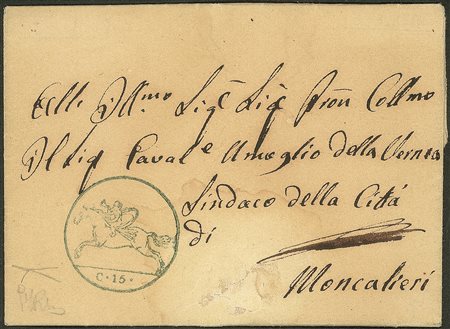 All Ill.mo Sig.e Sig.e Pron Col.mo
Il Sig Caval.e Ameglio della Vernea
Sindaco della Cittá
di
Moncalieri
C · 15 ·